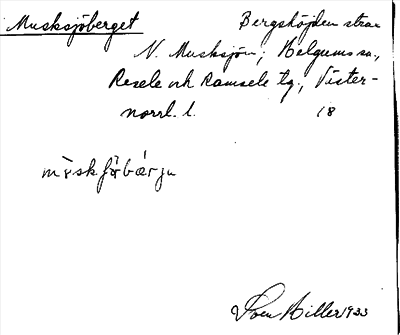 Musksjöberget Bergshöjden strax
N. Musksjön; Helgums sn.,
Resele och Ramsele tg., Väster-
norrl. l. 18
Sven Hiller 1933